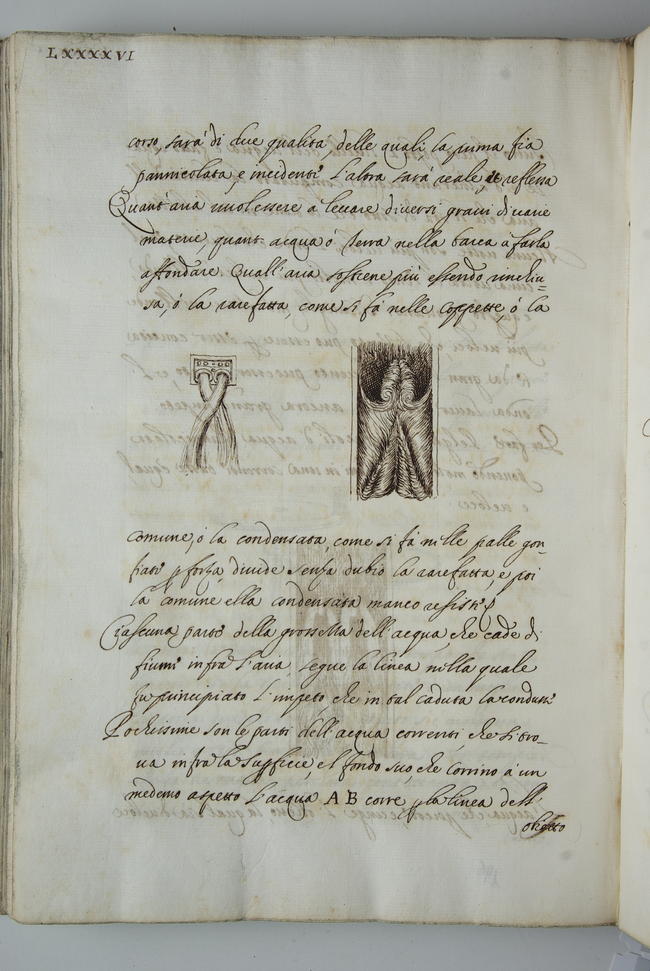 LXXXXVI
corso, sarà di due qualità, delle quali, la prima fia
pannicolata, e incidenti L'altra sarà reale, e reflessa
Quant'aria vuol essere a levare diversi gravi di varie
materie, quant'acqua ò terra nella barca à farla
affondare. Quall'aria sostiene più essendo rinchiu=
sa, ò la rarefatta, come si fà nelle coppette, ò la
comune, ò la condensata, come si fà nille palle gon=
fiati p forza, divide senza dubio la rarefatta, e poi
la comune ella condensata manco resisti
Ciascuna parti della grossetta dell'acqua, che cade di
fiumi infrà l'aria, segue la linea nilla quale
fu principiato L'impeto, che in tal caduta la condussi
Pochissime son le parti dell'acqua correnti, che si tro=
va infrà la supficie, el fondo suo, che corrino à un
medemo aspetto L'acqua A B corre p la linea dell'
obgetto